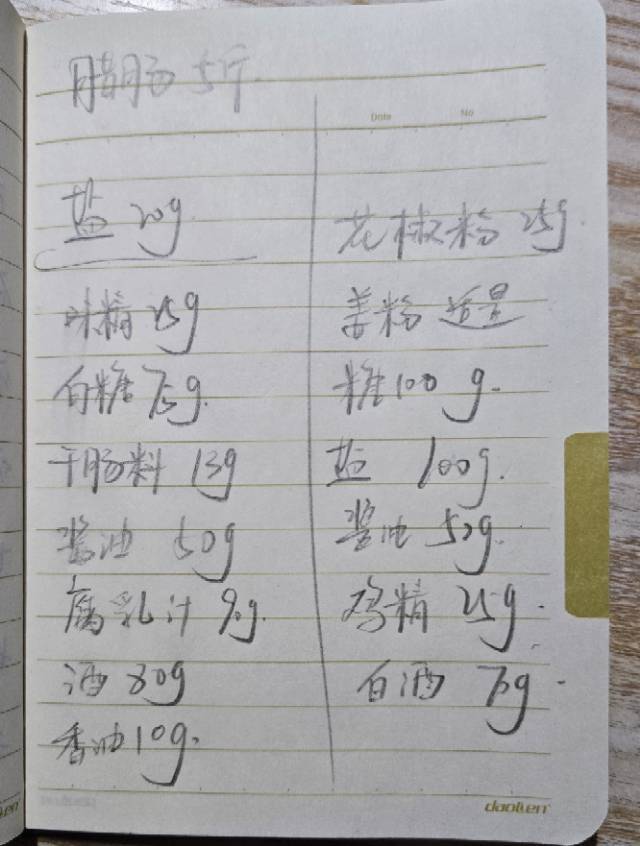 腊肠 5斤.
Date No
盐 20g
味精 25g
白糖 75g.
干肠料 13g
酱油 50g
腐乳汁 90g.
酒 80g
香油 10g.
花椒粉 25g.
姜粉 适量
糖 100 g.
盐 100g.
酱油 50g.
鸡精 25g.
白酒 75g.
daolen